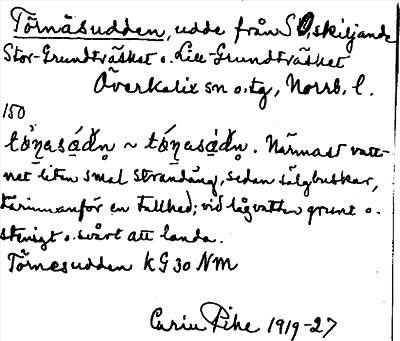 Törnäsudden, udde från SO skiljande
Stor-Grundträsket o. Lill-Grundträsket
Överkalix sn o. tg, Norrb. l.
150
Närmast vatt-
net liten smal strandäng, sedan sälgbuskar,
därinnanför en tallhed; vid lågvatten grunt o.
stenigt o. svårt att landa.
Törnesudden KG 30 NM
Carin Pihl 1919-27